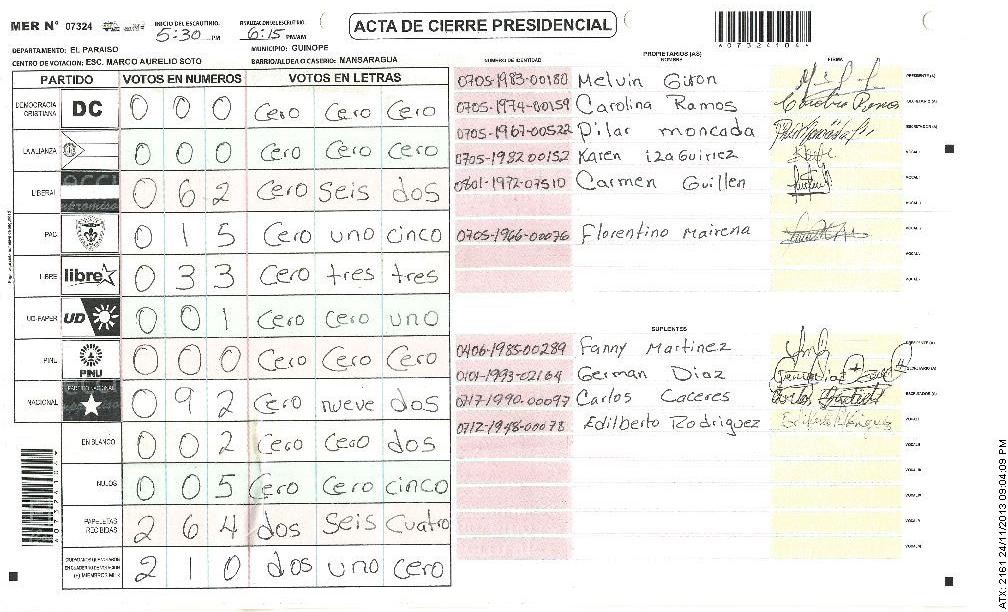 MER Nº 07324
INICIO DEL ESCRUTINIO.
5:30 PM
FINALIZACION DEL ESCRUTINIO.
6:15 PM/AM
ACTA DE CIERRE PRESIDENCIAL
A07324104
DEPARTAMENTO: EL PARAISO
MUNICIPIO: GUINOPE
CENTRO DE VOTACION: ESC. MARCO AURELIO SOTO
BARRIO/ALDEA O CASERIO: MANSARAGUA
PARTIDO VOTOS EN NUMEROS VOTOS EN LETRAS
DEMOCRACIA CRISTIANA DC 0 0 0 Cero Cero Cero
LA ALIANZA 0 0 0 Cero Cero Cero
LIBERAL 0 6 2 Cero seis dos
PAC 0 1 5 Cero uno cinco
LIBRE libre 0 3 3 Cero tres tres
UD-FAPER UD 0 0 1 Cero Cero uno
PINU PNU 0 0 0 Cero Cero Cero
NACIONAL PARTIDO NACIONAL 0 9 2 Cero nueve dos
EN BLANCO 0 0 2 Cero Cero dos
NULOS 0 0 5 Cero Cero cinco
PAPELETAS RECIBIDAS 2 6 4 dos seis cuatro
2 1 0 dos uno cero
PROPIETARIOS (AS)
NUMERO DE IDENTIDAD NOMBRE FIRMA
0705-1983-00180 Melvin Giron PRESIDENTE (A)
0705-1974-00159 Carolina Ramos SECRETARIO (A)
0705-1967-00522 Pilar moncada ESCRUTADOR (A)
0705-1982 00152 Karen izaguirrez VOCAL I
0801-1972-07510 Carmen Guillen
0705-1966-00076 Florentino Mairena
SUPLENTES
0406-1985-00289 Fanny Martinez
0101-1993-02164 German Diaz
0717-1990-00097 Carlos Caceres
0712-1948-00078 Edilberto Rodriguez
A07324104
ATX: 2161 24/11/2013 09:04:09 PM